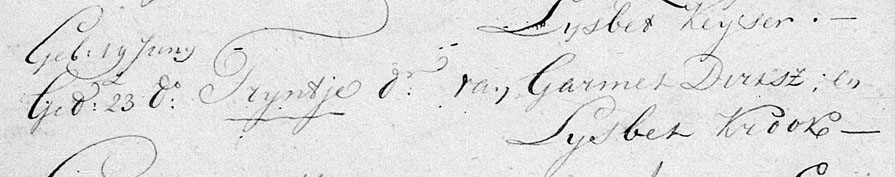 Lysbet Keyser. —
Geb: 19 Juny
Ged: 23 do: Tryntje dr: van Garmet Dirksz; en
Lysbet Krook —